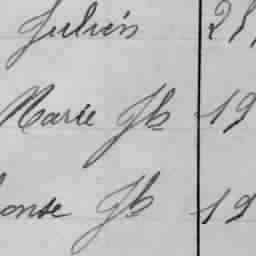 Julien 25
Marie Jh 19
onse Jh 19